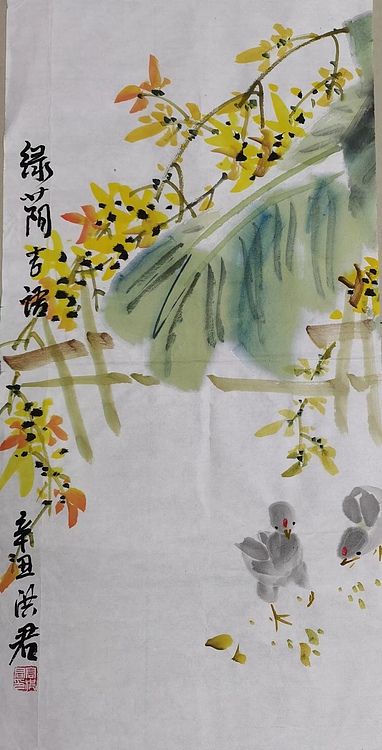 绿荫吉语
辛丑洪君